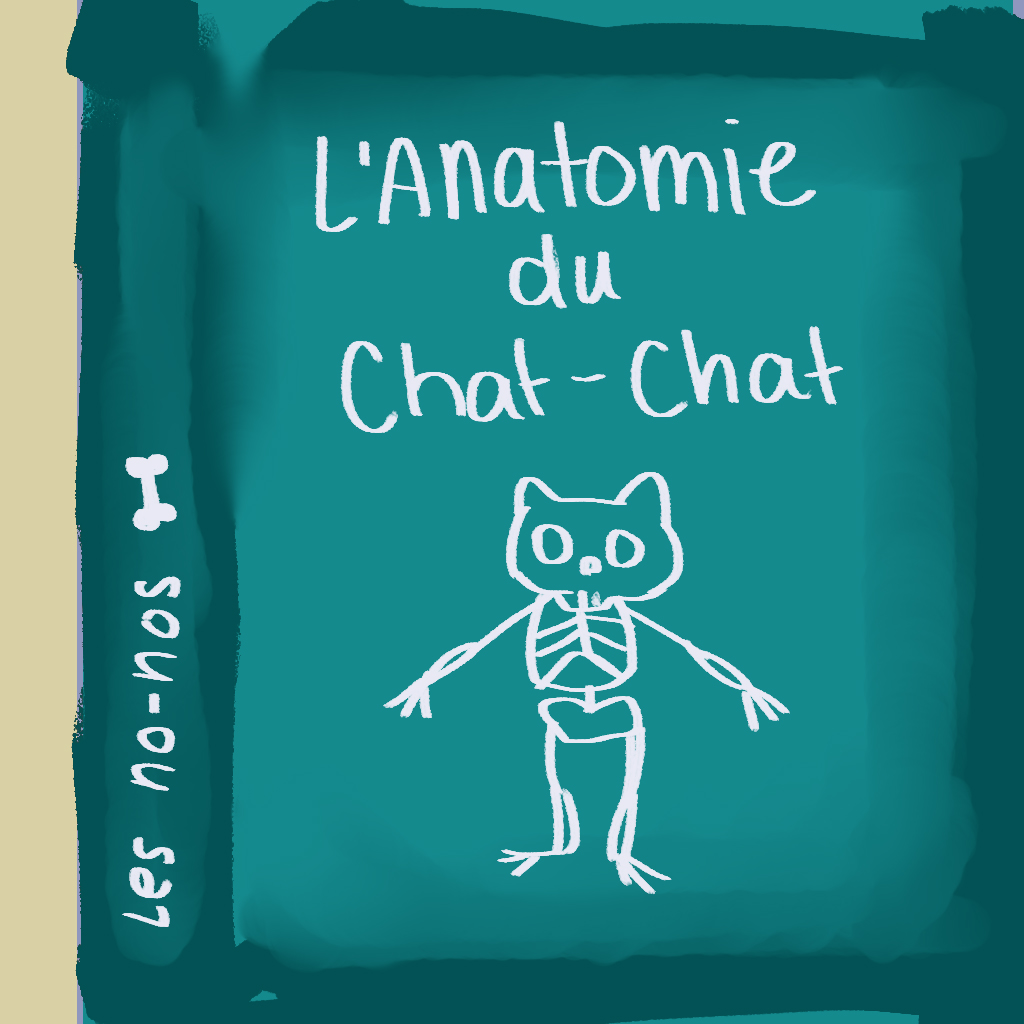 L'Anatomie
du
Chat-Chat
Les no-nos